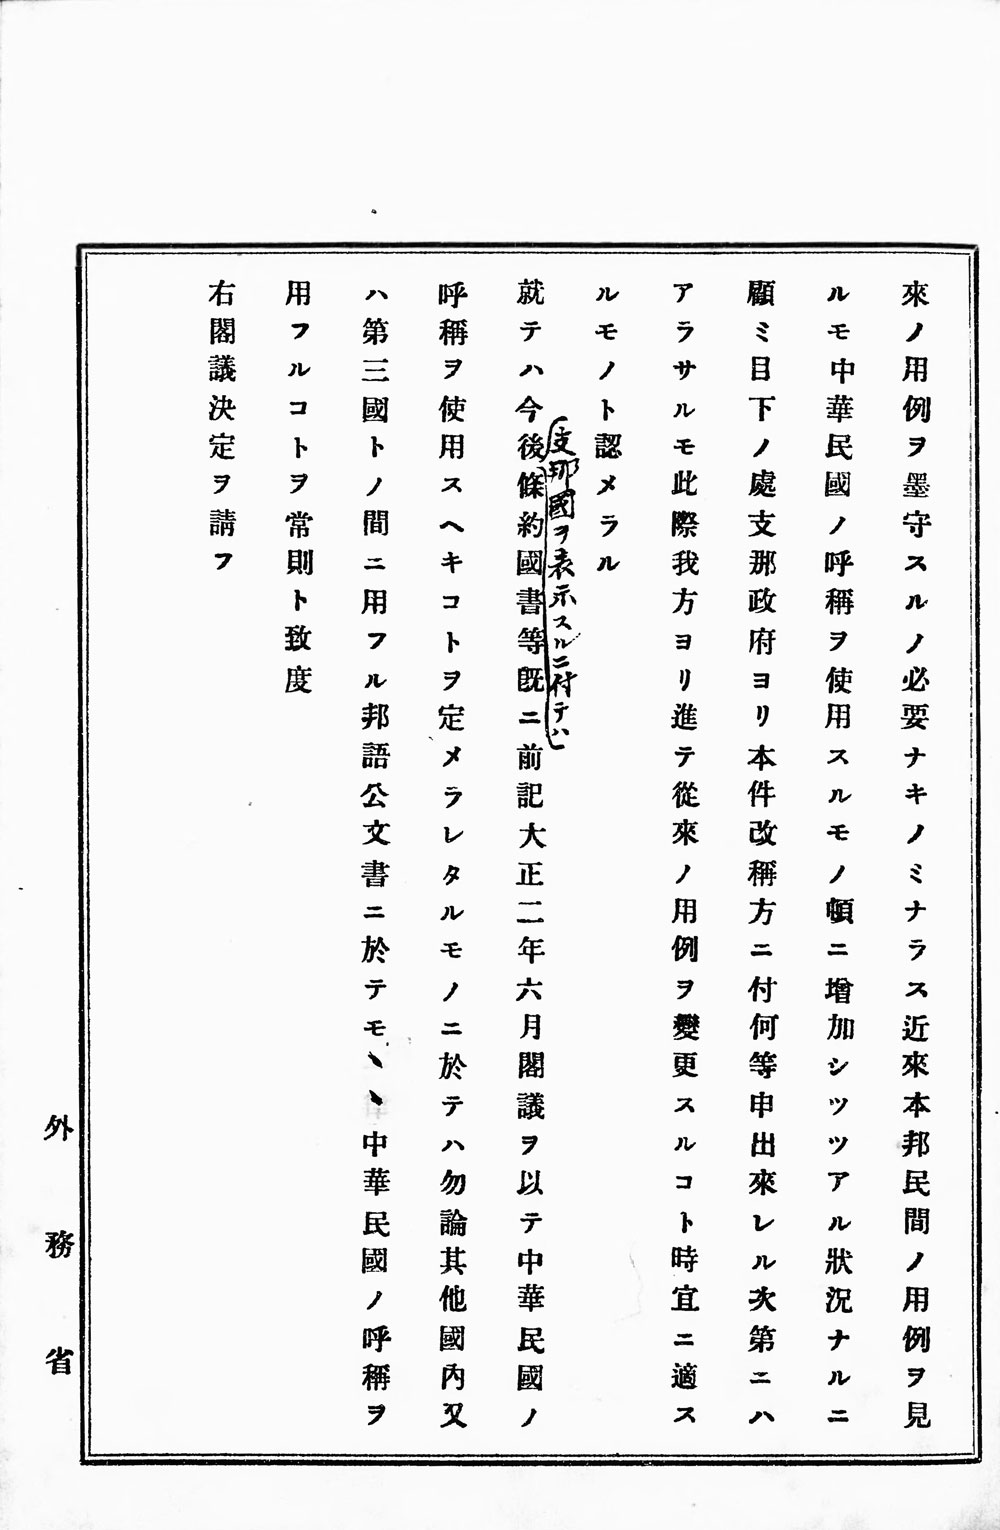 來ノ用例ヲ墨守スルノ必要ナキノミナラス近來本邦民間ノ用例ヲ見
ルモ中華民國ノ呼稱ヲ使用スルモノ頓ニ增加シツツアル狀況ナルニ
顧ミ目下ノ處支那政府ヨリ本件改稱方ニ付何等申出來レル次第ニハ
アラサルモ此際我方ヨリ進テ從來ノ用例ヲ變更スルコト時宜ニ適ス
ルモノト認メラル
支那國ヲ表示スルニ付テハ
就テハ今後條約國書等旣ニ前記大正二年六月閣議ヲ以テ中華民國ノ
呼稱ヲ使用スヘキコトヲ定メラレタルモノニ於テハ勿論其他國內又
ハ第三國トノ間ニ用フル邦語公文書ニ於テモ、、中華民國ノ呼稱ヲ
用フルコトヲ常則ト致度
右閣議決定ヲ請フ
外務省